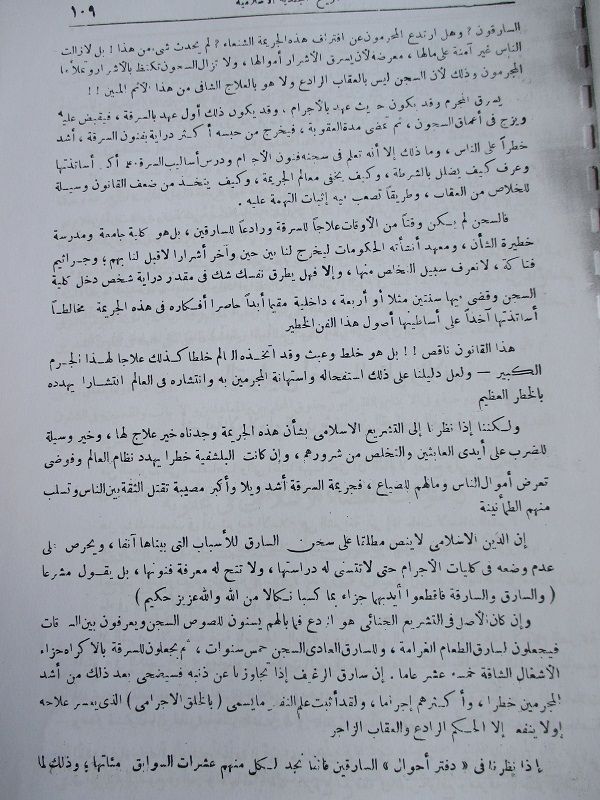 ١٠٩
السارقون ? وهل ارتدع المجرمون عن اقتراف هذه الجريمة الشنعاء ? لم يحدث شىء من هذا ! بل لا زالت
الناس غير آمنة على مالها ، معرضه لأن يسرق الأشرار أموالها ، ولا تزال السجون تكتظ بالأشرار وتملأ
المجرمون وذلك لأن السجن ليس بالعقاب الرادع ولا هو بالعلاج الشافى من هذا الاثم المبين !!
يسرق المجرم وقد يكون حديث عهد بالأجرام ، وقد يكون ذلك أول عهد بالسرقة ، فيقبض عليه
ويزج فى أعماق السجون ، ثم تمضى مدة العقوبة ، فيخرج من حبسه أكثر دراية بفنون السرقة ، أشد
خطراً على الناس ، وما ذلك إلا أنه تعلم فى سجنه فنون الأجرام ودرس أساليب السرقة على أكبر أساتذتها
وعرف كيف يضلل بالشرطة ، وكيف يخفى معالم الجريمة ، وكيف يتخذ من ضعف القانون وسيلة
للخلاص من العقاب ، وطريقاً تصعب فيه إثبات التهمة عليه .
فالسجن لم يكن وقتاً من الأوقات علاجاً للسرقة ورادعاً للسارقين ، بل هو كلية جامعة ومدرسة
خطيرة الشأن ، ومعهد أنشأته الحكومات ليخرج لنا بين حين وآخر أشرارا لاقبل لنا بهم ؛ وجراثيم
فتاكة ، لانعرف سبيل التخلص منها ، وإلا فهل يطرق نفسك شك فى مقدر دراية شخص دخل كلية
السجن وقضى فيها سنتين مثلا أو أربعة ، داخلية مقيما أبداً حاصرا أفكاره فى هذه الجريمة مخالطاً
أساتذتها آخذاً على أساطينها أصول هذا الفن الخطير
هذا القانون ناقص !! بل هو خلط وعبث وقد اتخذه العالم خلطا كذلك علاجا لهذا الجرم
الكبير — ولعل دليلنا على ذلك استفحاله واستهانة المجرمين به وانتشاره فى العالم انتشارا يهدده
بالخطر العظيم
ولكننا إذا نظرنا إلى التشريع الاسلامى بشأن هذه الجريمة وجدناه خير علاج لها ، وخير وسيلة
للضرب على أيدى العابثين والتخلص من شرورهم ، وإن كانت البلشفية خطرا يهدد نظام العالم وفوضى
تعرض أموال الناس ومالهم للضياع ، فجريمة السرقة أشد ويلا وأكبر مصيبة تقتل الثقة بين الناس وتسلب
منهم الطمأنينة
إن الدين الاسلامى لاينص مطلقا على سجن السارق للأسباب التى بيناها آنفا ، ويحرص على
عدم وضعه فى كليات الأجرام حتى لا تتسنى له دراستها ، ولا تتح له معرفة فنونها ، بل يقول مشرعا
( والسارق والسارقة فاقطعوا أيديهما جزاء بما كسبا نكالا من الله والله عزيز حكيم )
وإن كان الأصل فى التشريع الجنائى هو الردع فما بالهم يسنون للصوص السجن ويعرفون بين السرقات
فيجعلون لسارق الطعام الغرامة ، وللسارق العادى السجن خمس سنوات ، ثم يجعلون للسرقة بالاكراه جزاء
الأشغال الشاقة خمسة عشر عاما . إن سارق الرغيف إذا تجاوزنا عن ذنبه فسيضحى بعد ذلك من أشد
المجرمين خطرا ، وأكثرهم إجراما ، ولقد أثبت علم النفس مايسمى ( بالخلق الاجرامى ) الذى يعسر علاجه
إولا ينفعه إلا الحكم الرادع والعقاب الزاجر
إذا نظرنا فى « دفتر أحوال » السارقين فاننا نجد لكل منهم عشرات السوابق مثاتها ، وذلك لما